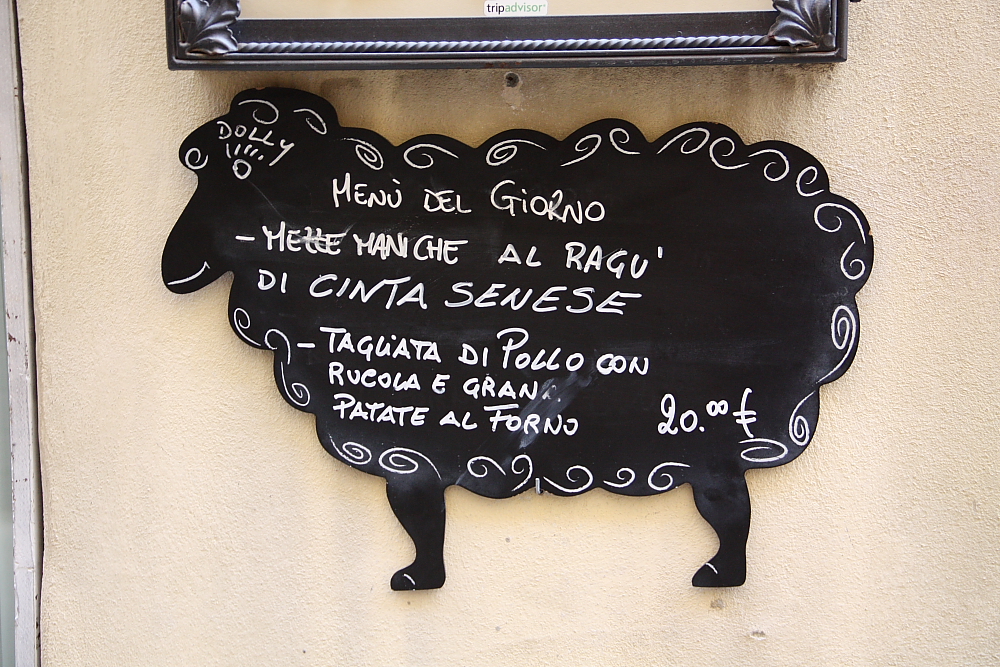 tripadvisor
DOLLY
MENÙ DEL GIORNO
- MEZZE MANICHE AL RAGU'
DI CINTA SENESE
- TAGLIATA DI POLLO CON
RUCOLA E
PATATE AL FORNO
20.00 €